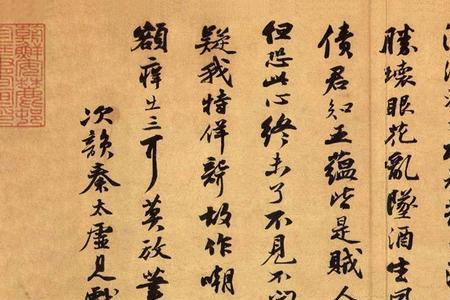 勝壞眼花亂墜酒生風
債君知五蘊皆是賊人
但恐此心終未了不見不聞
疑我特佯聾故作嘲
額痒出三耳莫放筆
次韻秦太虛見戲